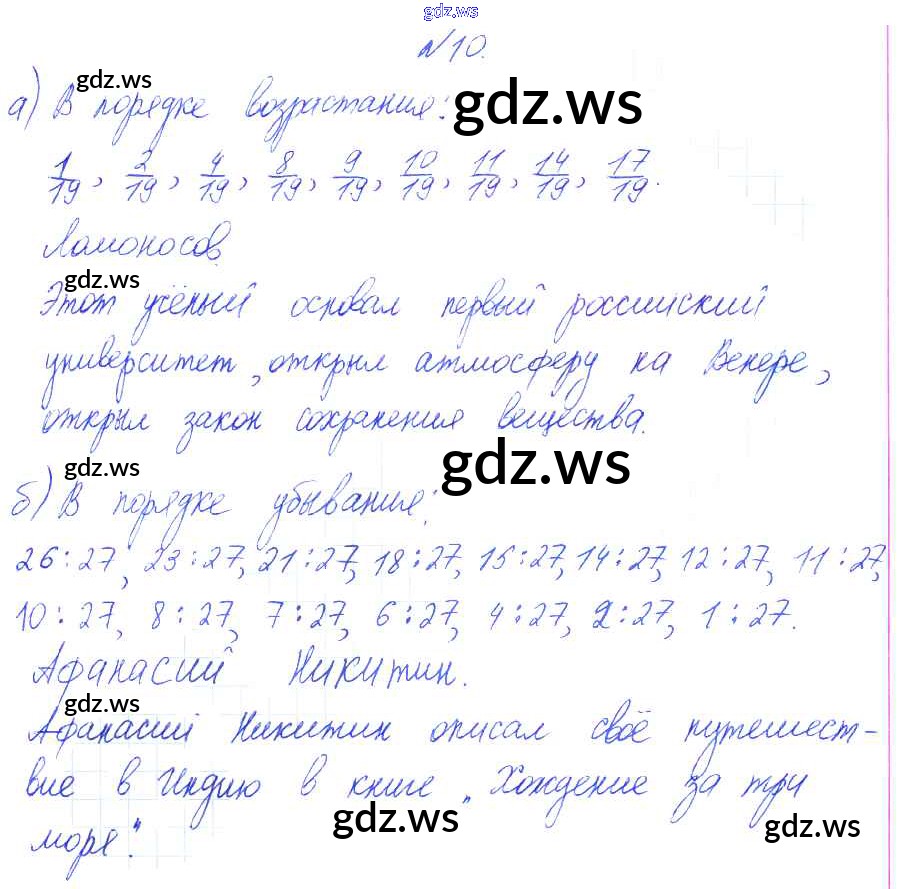 gdz.ws
№10.
gdz.ws
а) В порядке возрастания:
gdz.ws
1/19, 2/19, 4/19, 8/19, 9/19, 10/19, 11/19, 14/19, 17/19.
Ломоносов
gdz.ws
Этот учёный основал первый российский
университет, открыл атмосферу на Венере,
открыл закон сохранения вещества.
gdz.ws
gdz.ws
б) В порядке убывания:
26:27, 23:27, 21:27, 18:27, 15:27, 14:27, 12:27, 11:27,
10:27, 8:27, 7:27, 6:27, 4:27, 2:27, 1:27.
Афанасий Никитин.
gdz.ws
Афанасий Никитин описал своё путешест-
вие в Индию в книге „Хождение за три
gdz.ws
gdz.ws
моря".